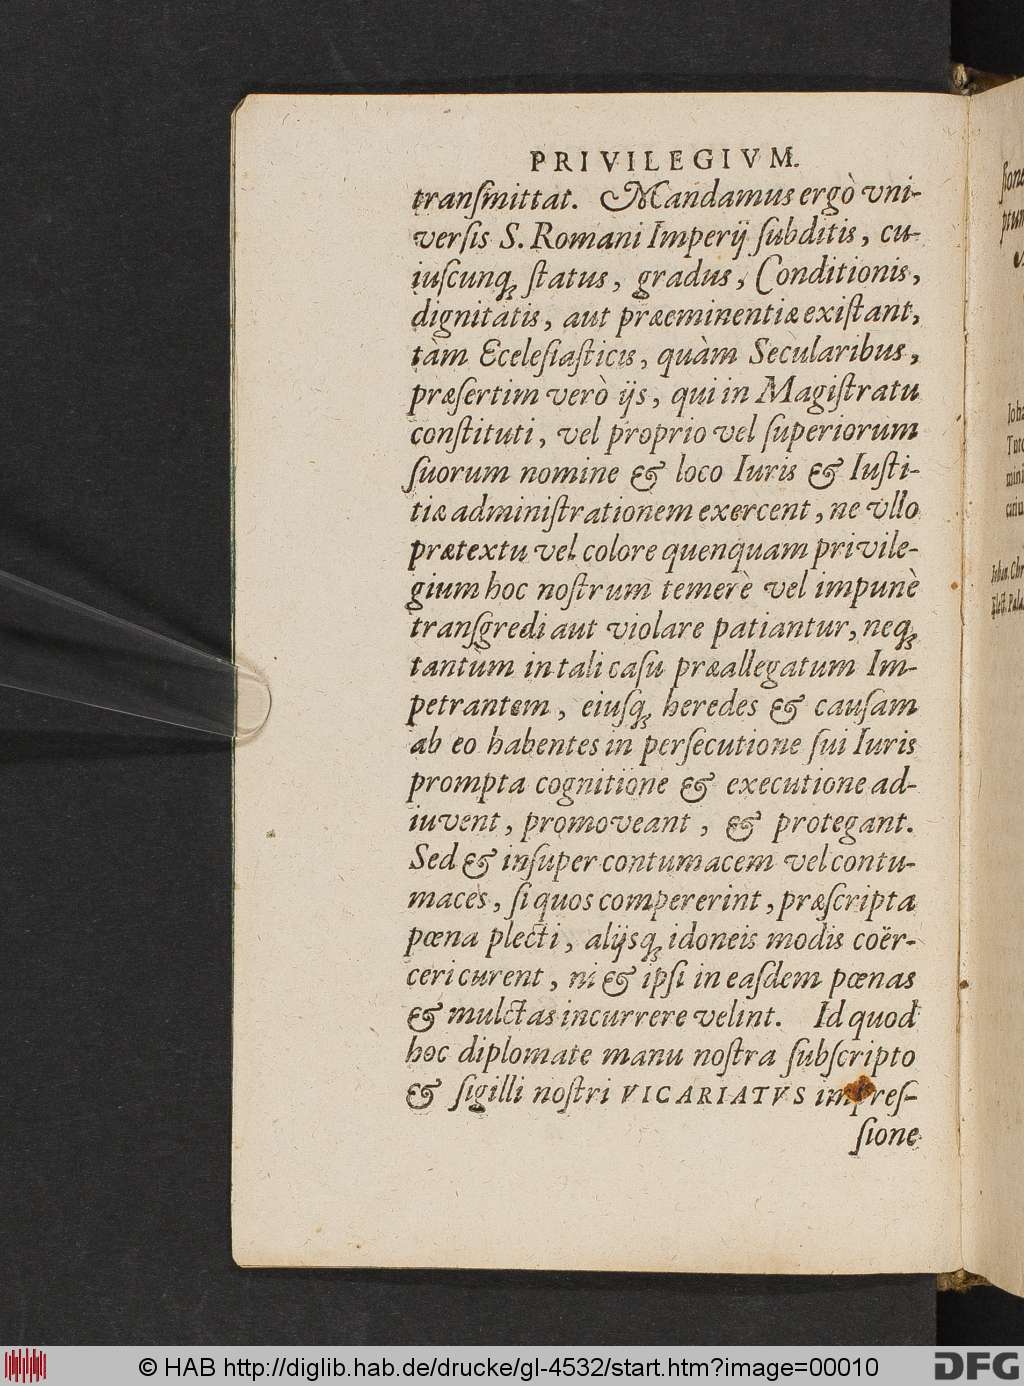 PRIVILEGIVM.
tranſmittat. Mandamus ergò vni-
verſis S. Romani Imperij ſubditis, cu-
iuſcunq; ſtatus, gradus, Conditionis,
dignitatis, aut præeminentiæ exiſtant,
tàm Eceleſiaſticis, quàm Secularibus,
præſertim verò ijs, qui in Magiſtratu
conſtituti, vel proprio vel ſuperiorum
ſuorum nomine & loco Iuris & Iuſti-
tiæ adminiſtrationem exercent, ne vllo
prætextu vel colore quenquam privile-
gium hoc noſtrum temerè vel impunè
tranſgredi aut violare patiantur, neq;
tantùm in tali caſu præallegatum Im-
petrantem, eiuſq; heredes & cauſam
ab eo habentes in perſecutione ſui Iuris
prompta cognitione & executione ad-
iuvent, promoveant, & protegant.
Sed & inſuper contumacem vel contu-
maces, ſi quos compererint, præſcripta
pœna plecti, alijsq; idoneis modis coër-
ceri curent, ni & ipſi in eaſdem pœnas
& mulctas incurrere velint. Id quod
hoc diplomate manu noſtra ſubſcripto
& ſigilli noſtri VICARIATVS impreſ-
ſione
ſione
ptum
Joha
Turc
mini
cariu
Johan. Chr
Elect. Pala
© HAB http://diglib.hab.de/drucke/gl-4532/start.htm?image=00010
DFG